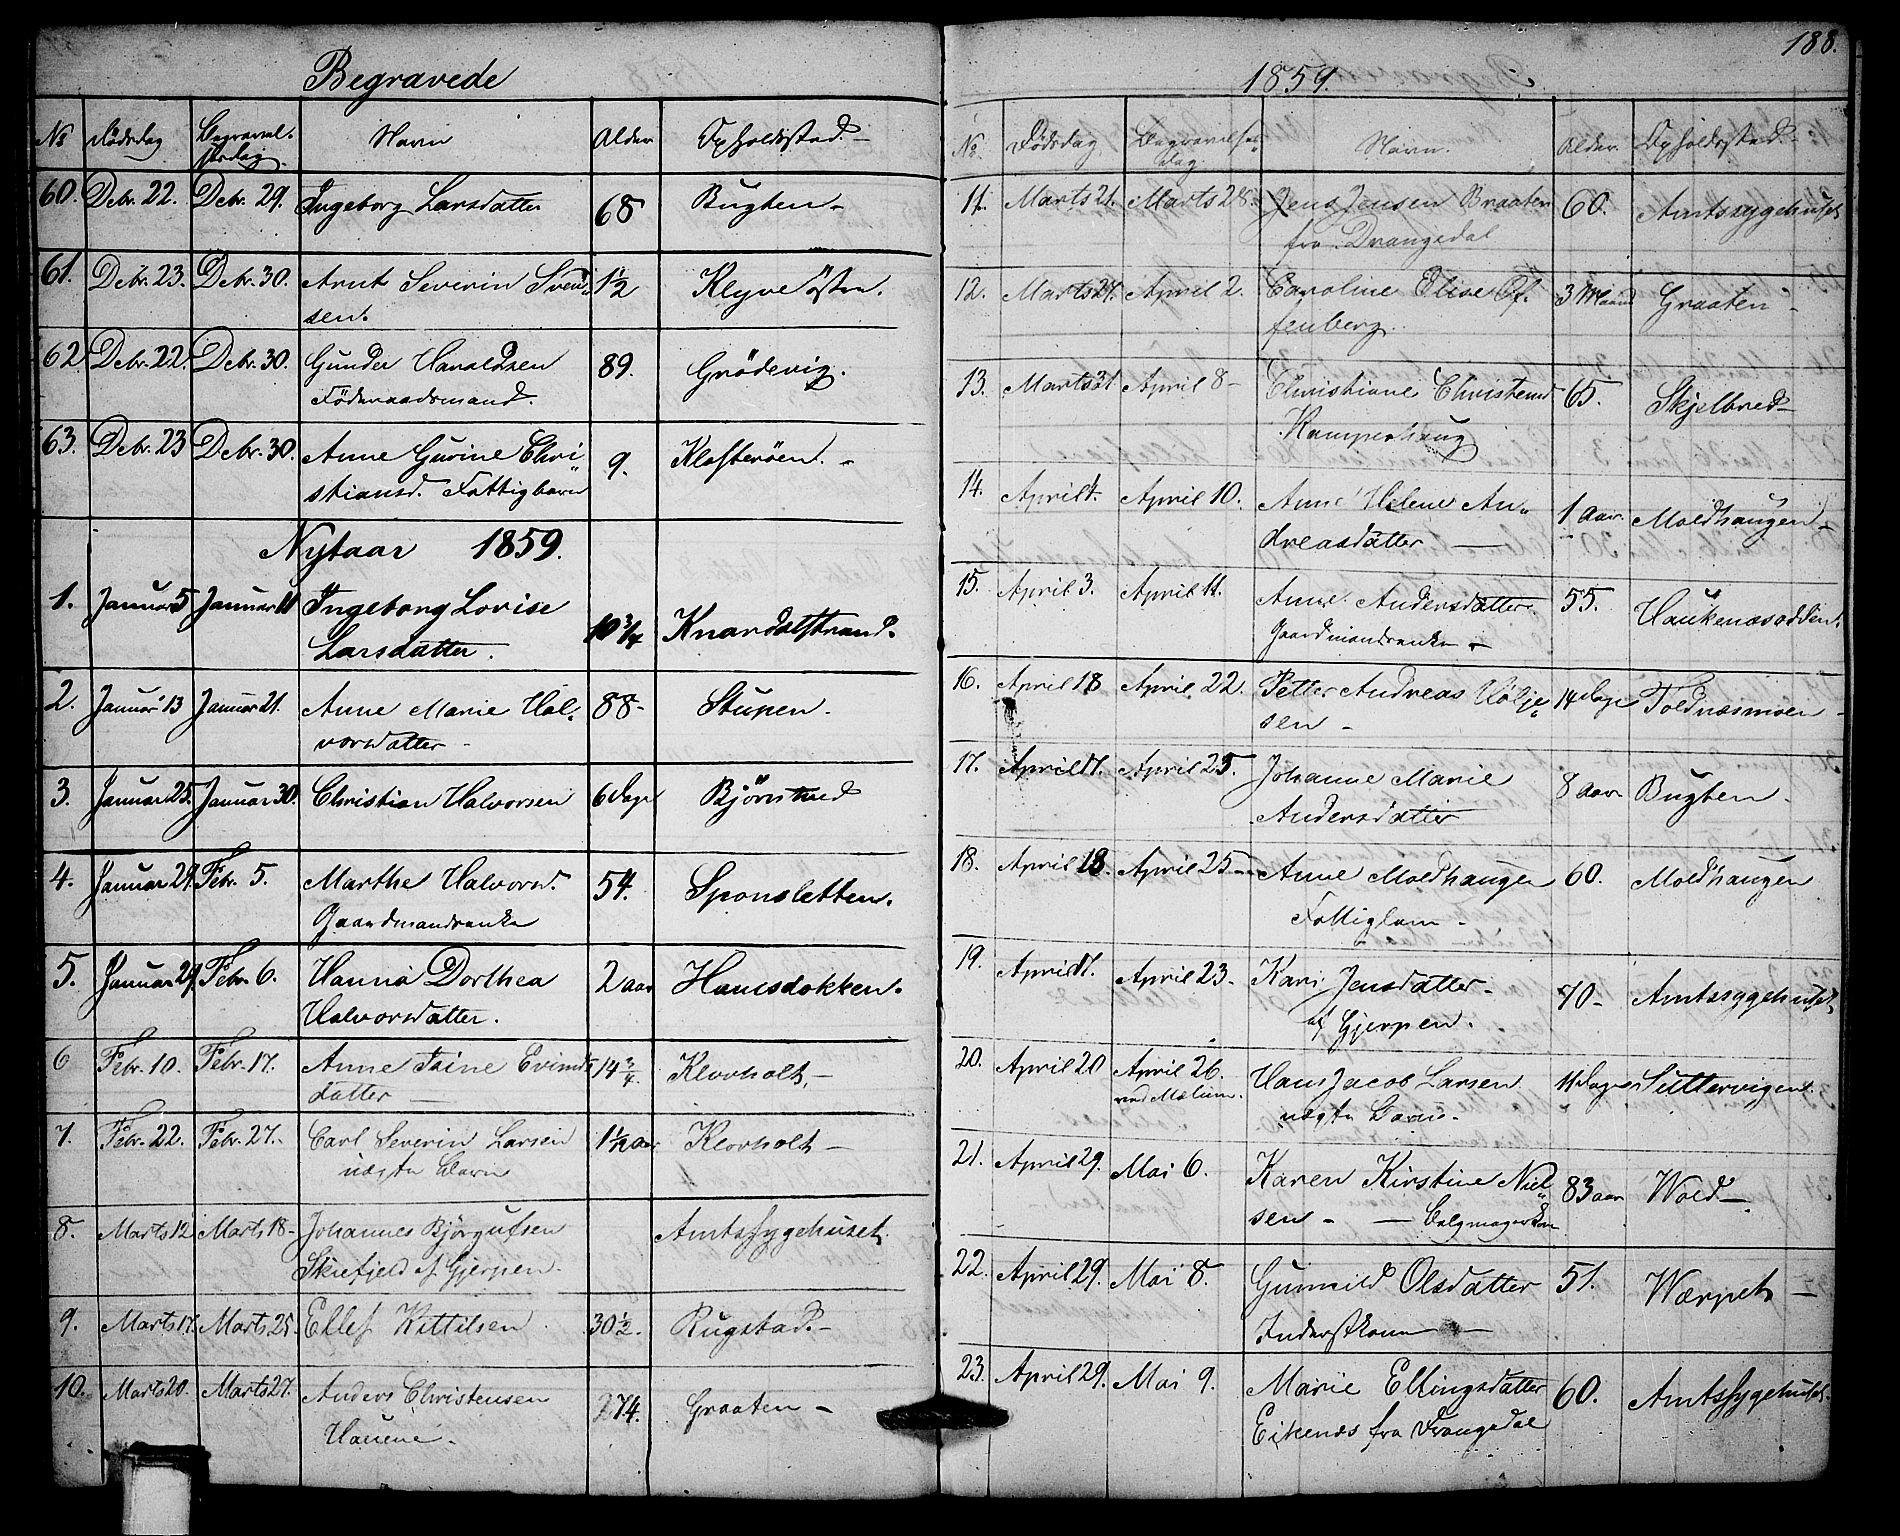 Begravede
No Dødsdag Begravelsesdag Navn Alder Opholdssted
60. Debr. 22. Debr. 29. Ingeborg Larsdatter 68 Bugten
61. Debr. 23. Debr. 30. Arnt Severin Svend-
sen. 1½ Klyve östre.
62 Debr. 22. Debr. 30. Gunder Haraldsen 89. Grödevig.
Föderaadsmand.
63. Debr. 23 Debr. 30. Anne Gurine Chri-
stiansd. Fattigbarn 9. Klosteröen.
Nytaar 1859.
1. Januar 5 Januar 11 Ingeborg Lovise
Larsdatter. 10 3/4 Knardalstrand.
2. Januar 13 Januar 21. Anne Marie Hal-
vorsdatter 88 Stupen.
3. Januar 25. Januar 30. Christian Halvorsen 6 Dage Björnstad
4. Januar 29. Febr. 5. Marthe Halvorsd. 54. Sponsletten.
Gaardmandsenke
5. Januar 29 Febr. 6. Hanna Dorthea 2 aar Hansdokken.
Halvorsdatter.
6 Febr. 10. Febr. 17. Anne Evinds
datter 14 3/4. Klovholt
7. Febr. 22. Febr. 27. Carl Severin Larsen Klovholt
uægte Barn
8. Marts 12 Marts 18 Johannes Björgufsen Amtssygehuset
Skrefjeld af Gjerpen.
9. Marts 17. Marts 25. Ellef Kittilsen 30½. Rugstad.
10. Marts 20. Marts 27. Anders Christensen 74. Graaten
Hauene.
188.
1859.
No. Dødsdag Begravelsesdag Navn. Alder. Opholdssted
11. Marts 21. Marts 28. Jens Jensen Braaten 60. Amtssygehuset
fra Drangedal
12. Marts 27. April 2. Caroline Elise Of-
fenberg. 3 Maan Graaten
13. Marts 31 April 8 Christiane Christensd 65. Skjelbred
Kamperhaug
14. April 4. April 10. Anne Helene An-
dreasdatter 1 Aar. Moldhaugen
15. April 3. April 11. Anne Andersdatter 55. Haukenæsodden.
Gaardmandsenke
16. April 18 April 22. Petter Andreas Hölje-
sen 14 Dage Toldnæsmoen
17. April 17. April 25. Johanne Marie 8 Aar Bugten
Andersdatter
18. April 18. April 25 Anne Moldhaugen 60. Moldhaugen
Fattiglem
19. April 17. April 23. Kari Jensdatter 70 Amtssygehuset
af Gjerpen.
20. April 20 April 26. Hans Jacob Larsen 11 Dage
ved Mælum. uægte Barn.
21. April 29. Mai 6. Karen Kirstine Niel-
sen 83 aar Wold
22. April 29. Mai 8. Gunnild Olsdatter 51. Wærpet
Inderstkone
23. April 29. Mai 9. Marie Ellingsdatter 60. Amtssygehuset
Eikenes fra Drangedal